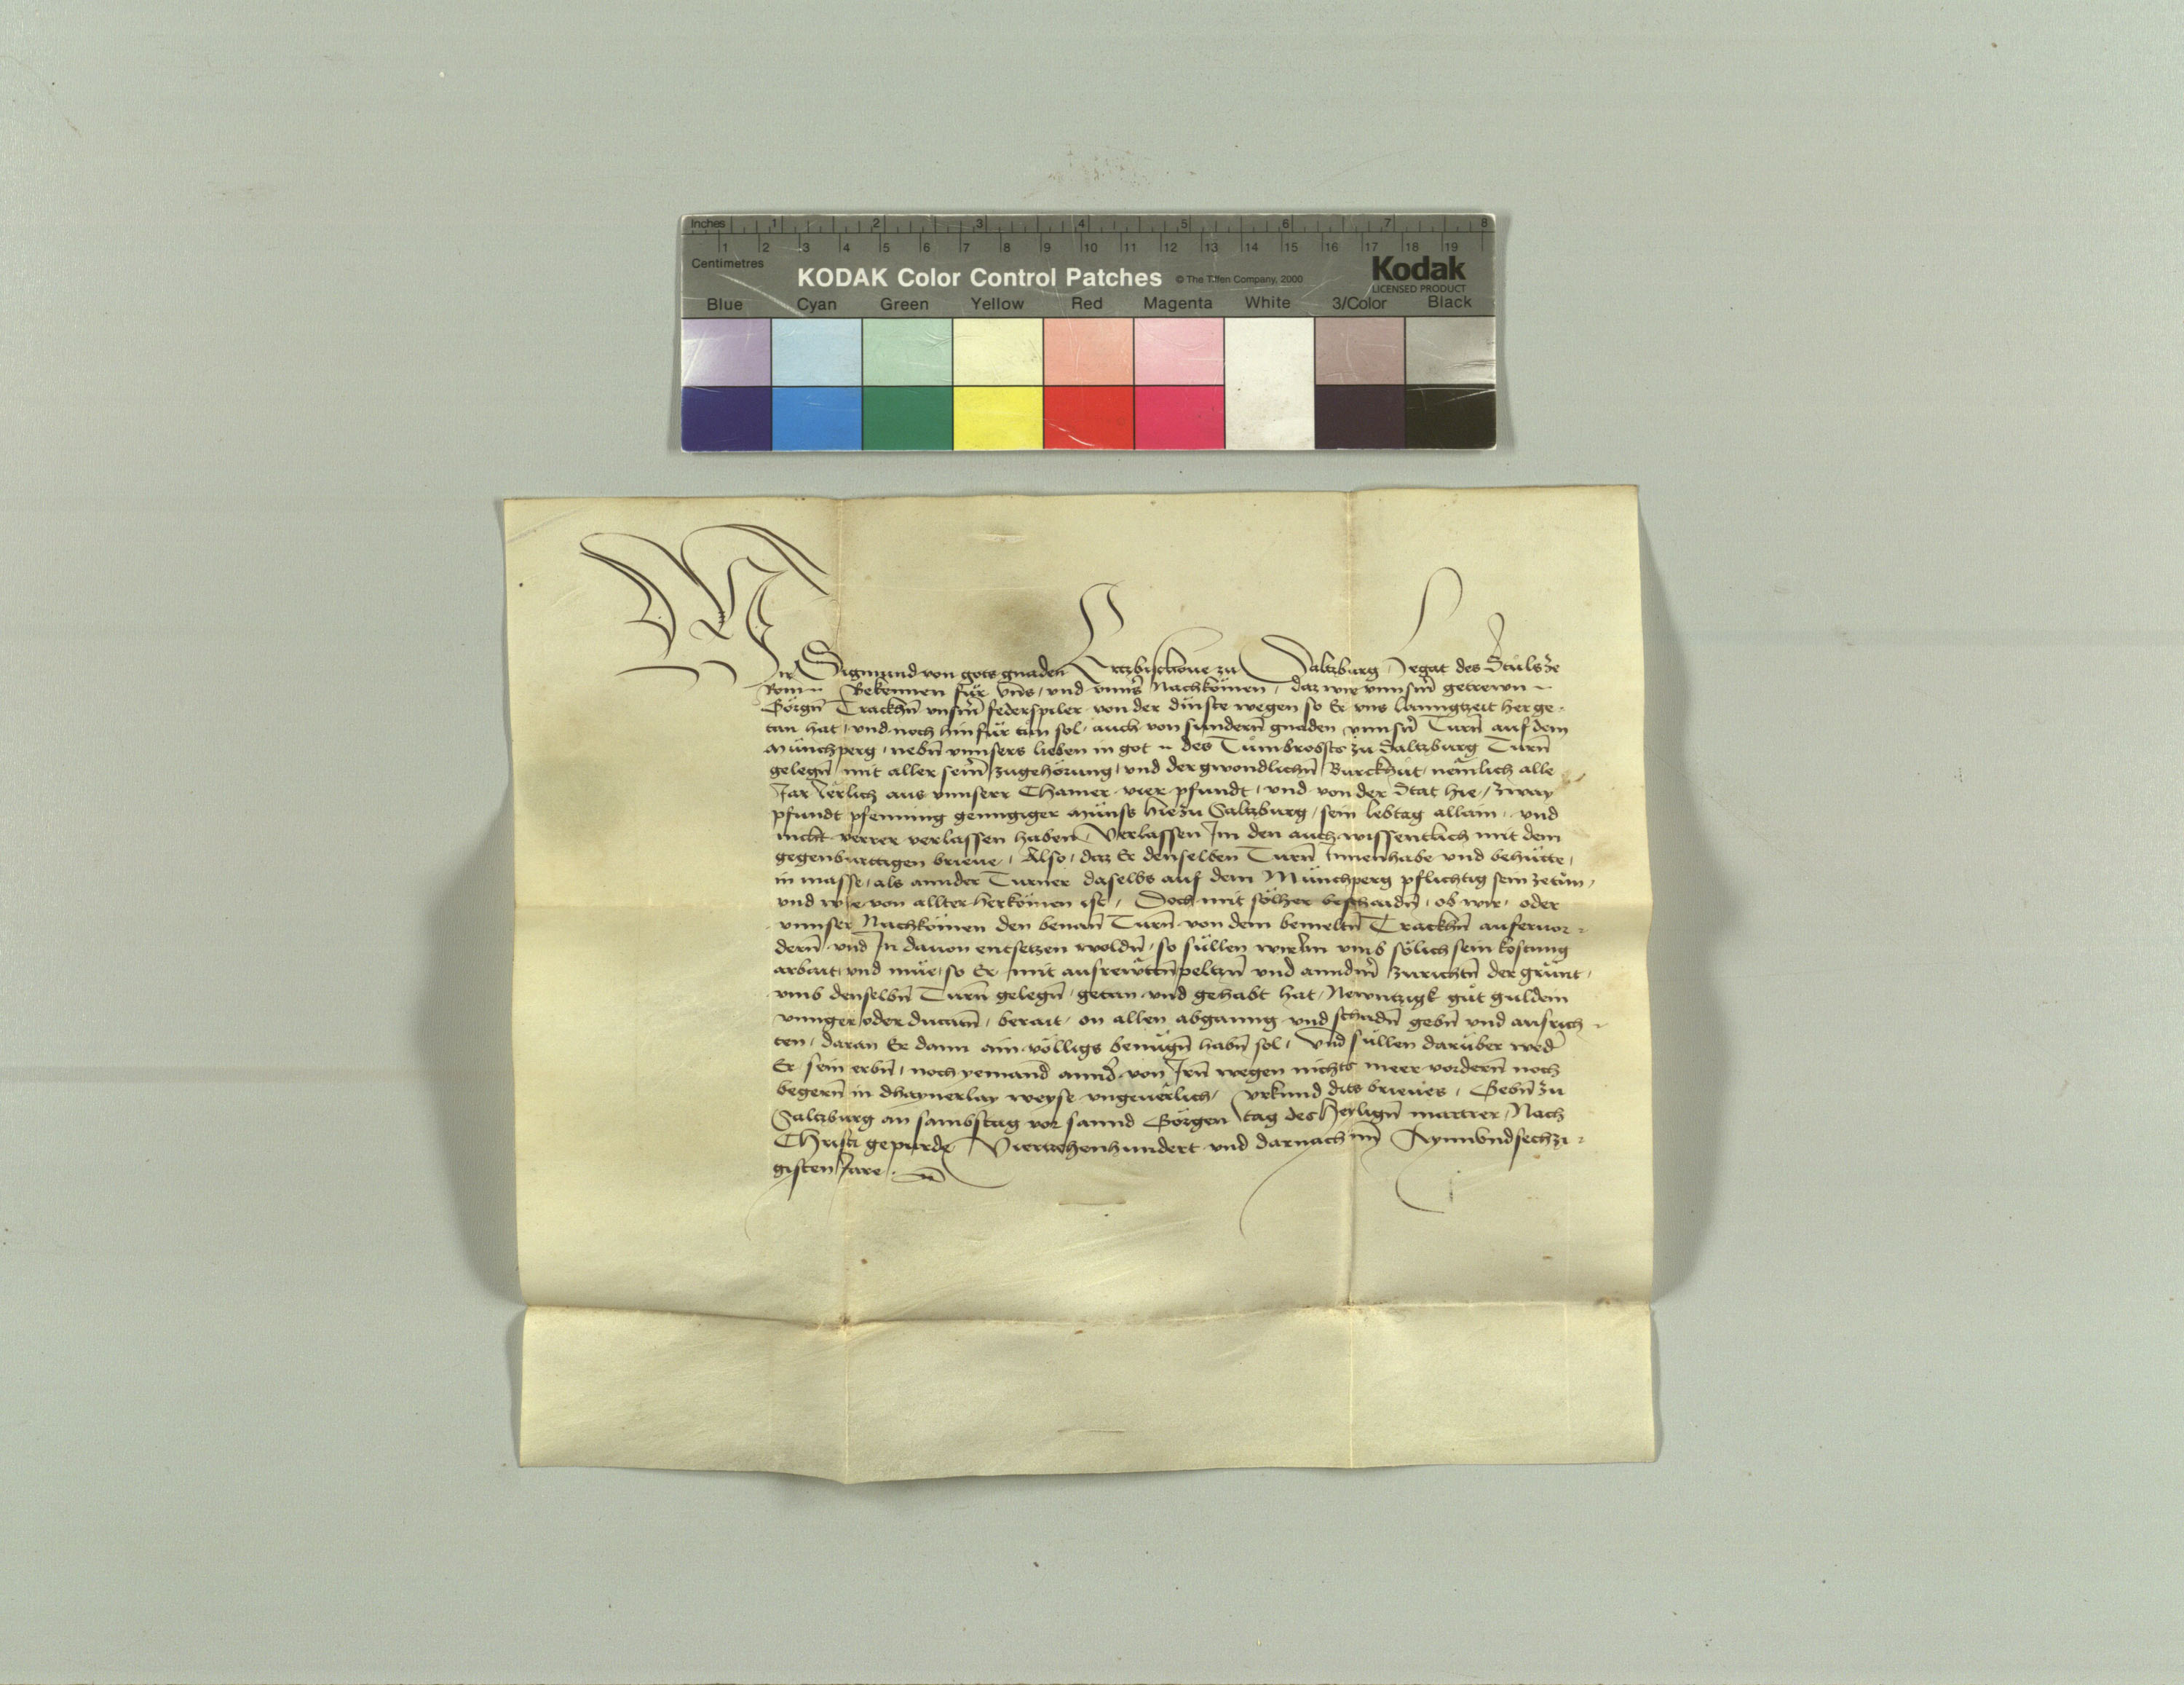 Inches 1 2 3 4 5 6 7 8
1 2 3 4 5 6 7 8 9 10 11 12 13 14 15 16 17 18 19
Centimetres
KODAK Color Control Patches © The Tiffen Company, 2000 Kodak
LICENSED PRODUCT
Blue Cyan Green Yellow Red Magenta White 3/Color Black
Wir Sigmund von gots gnaden Ertzbischoue zu Saltzburg Legat des Stuls ze
Rom Bekennen für vns, vnd vnnser Nachkömen, daz wir vnnserm getrewn
Görgn Trackhn vnserm federspiler von der dinste wegen so Er vns lanngtzeit her ge-
tan hat, vnd noch hinfür tun sol, auch von sundern gnaden vnnsern Turn auf dem
Münchperg, nebn vnnsers lieben in got des Tumbrobsts zu Saltzburg Turn
gelegn mit aller seiner zugehörung, vnd der gwondlichn Burckhut, nemlich alle
Jar Jerlich aus vnnserr Chamer vier pfundt, vnd von der Stat hie, zway
pfundt pfenning genngiger münss hie zu Saltzburg, sein lebtag allain, vnd
nicht verrer verlassen haben, Verlassen Im den auch wissentlich mit dem
gegenburttigen brieue, Also, daz Er denselben Turn Innenhabe vnd behütte,
in masse, als annder Turner daselbs auf dem Münchperg pflichtig sein zetun,
vnd wie von allter herkömen ist, Doch mit sölher beschaidn, ob wir, oder
vnnser Nachkömen den benantn Turn von dem bemeltn Trackhn anfervor-
dern vnd In dauon entsetzen woldn, so süllen wir Im vmb sölich sein kostung
arbait, vnd müe, so Er mit ausrewttn peltzn vnd annderm zurichtn der grünt,
vmb denselbn Turn gelegn, getan vnd gehabt hat, Newntzigk gut guldein
vnnger oder ducatn, berait, on allen abganng vnd schadn gebn vnd ausrich-
ten, daran Er dann ain völligs benügn habn sol, Vnd süllen darüber weder
Er, sein erbn, noch yemand annder von Irn wegen nichts meer vordern noch
begern in dhaynerlay weyse vngeuerlich, Vrkund dits brieues, Gebn zu
Saltzburg an sambstag vor sannd Görgen tag des heylign martrer, Nach
Christi gepurde Viertzehenhundert vnd darnach im Aynnvndsechzi-
gisten Jare